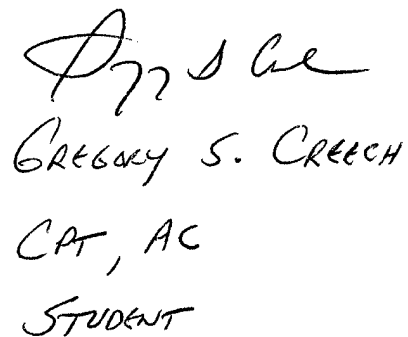 Gregory S. Creech
CPT, AC
Student